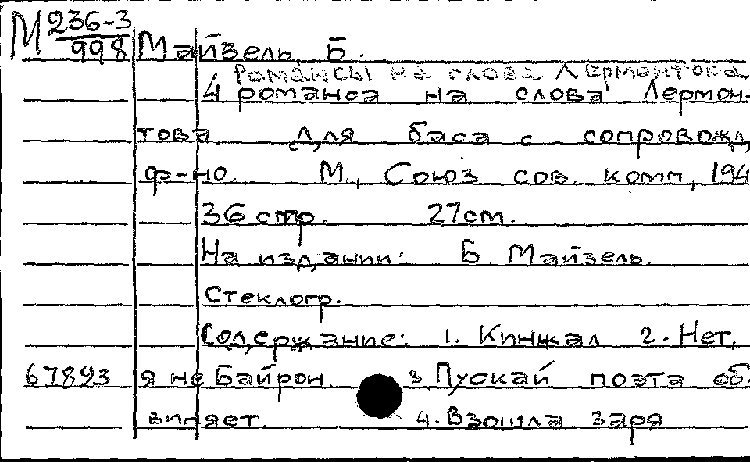 М 236-3
998
Майзель, Б.
Романсы на слова Лермонтова
4 романса на слова Лермон-
това для баса с сопровожд.
ф-но. М., Союз сов. комп., 194
36 стр. 27 см.
На издании: Б. Майзель.
Стеклогр.
Содержание: 1. Кинжал 2. Нет,
67893 я не Байрон. 3. Пускай поэта об-
виняет. 4. Взошла заря